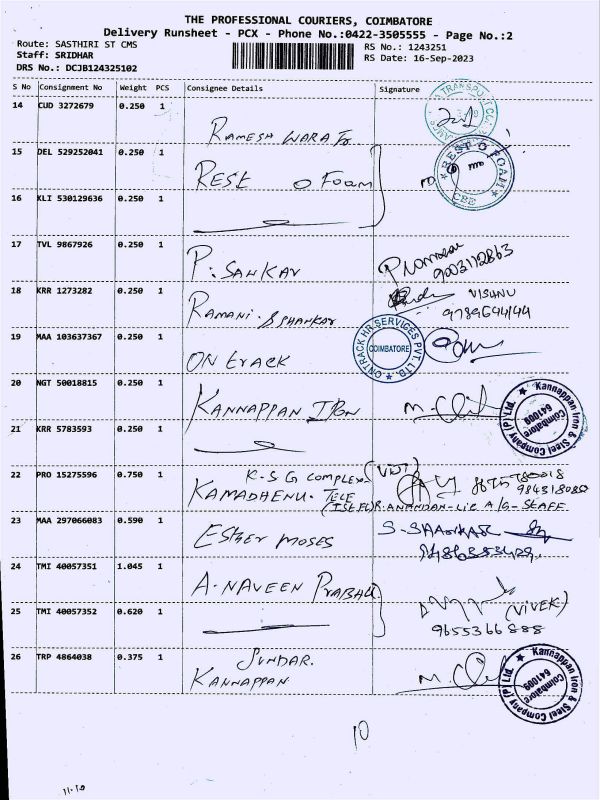 THE PROFESSIONAL COURIERS, COIMBATORE
Delivery Runsheet - PCX - Phone No.:0422-3505555 - Page No.:2
Route: SASTHIRI ST CMS
Staff: SRIDHAR
DRS No.: DCJB124325102
RS No.: 1243251
RS Date: 16-Sep-2023
S No Consignment No Weight PCS Consignee Details Signature
14 CUD 3272679 0.250 1
RAMESH WARA
15 DEL 529252041 0.250 1
REST O Foam
REST O FOAM
CBE
16 KLI 530129636 0.250 1
17 TVL 9867926 0.250 1
P. SANKAR
9003112863
18 KRR 1273282 0.250 1
RAMANI. B SHANKAR
VISHNU
9789694144
19 MAA 103637367 0.250 1
ON track
ON TRACK HR SERVICES PVT. LTD.
COIMBATORE
20 NGT 50018815 0.250 1
KANNAPPAN IRON
Kannappan Iron & Steel Company (P) Ltd.
Coimbatore
641009
21 KRR 5783593 0.250 1
22 PRO 15275596 0.750 1
K.S G COMPLEX
KAMADHENU. TELE
(Ist FLR. ANANDAN - LIC A/G - STAFF
23 MAA 297066083 0.590 1
ESther MOSES
24 TMI 40057351 1.045 1
A. NAVEEN PRABHU
25 TMI 40057352 0.620 1
(VIVEK)
9655366888
26 TRP 4864038 0.375 1
SUNDAR.
KANNAPPAN
Kannappan Iron & Steel Company (P) Ltd.
Coimbatore
641009
10
11.10